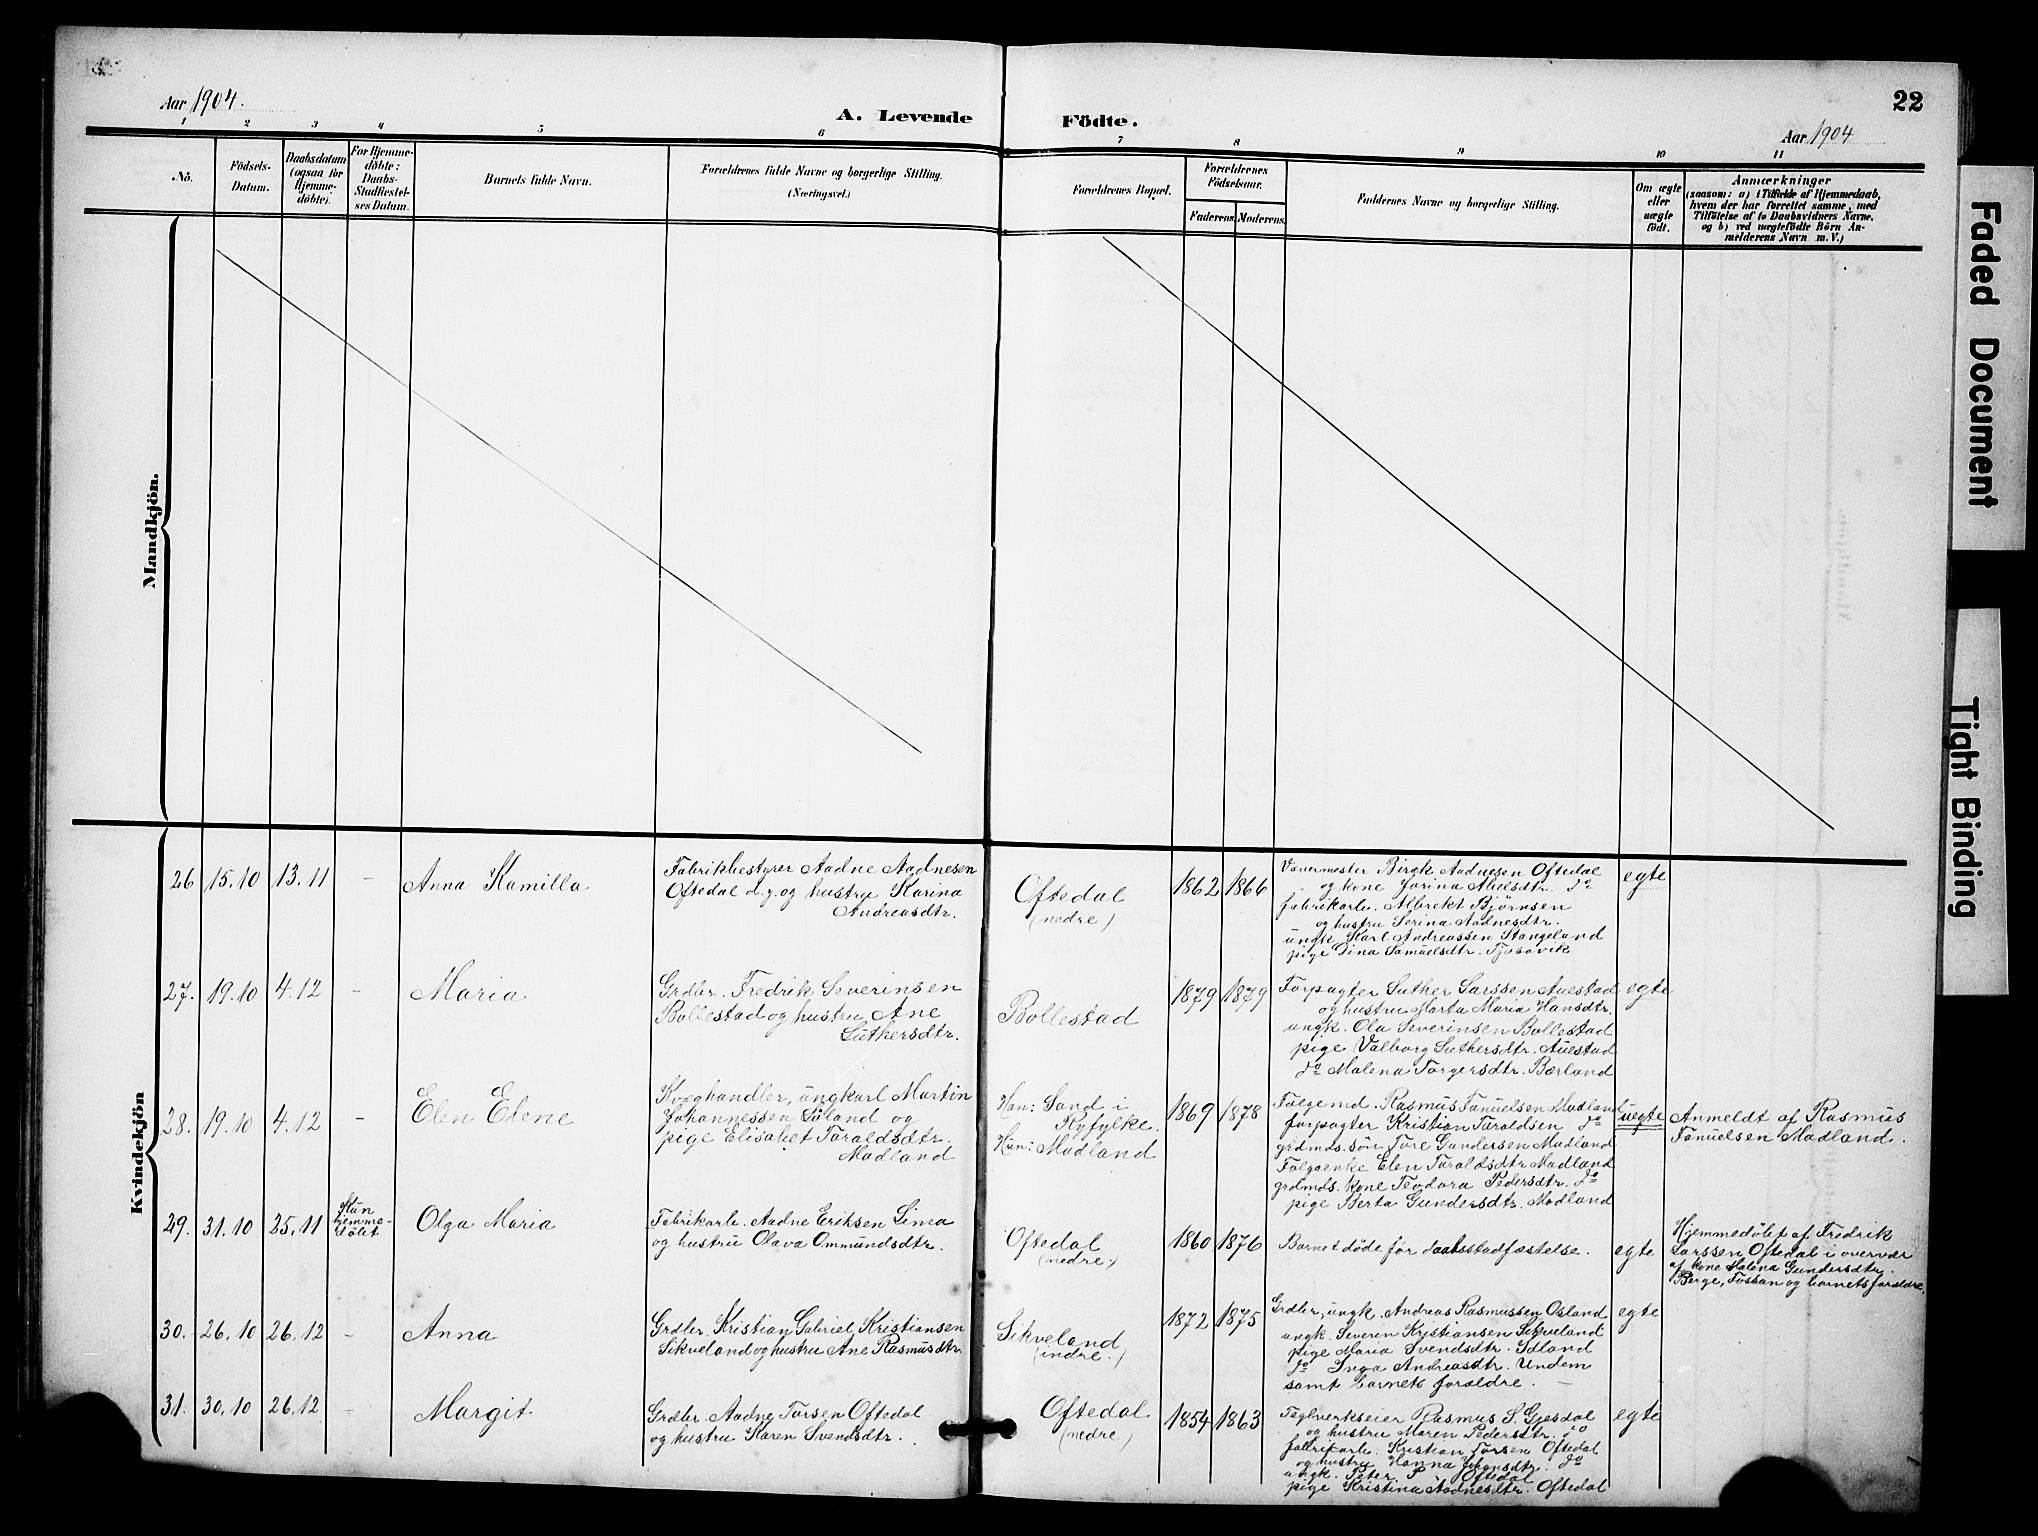 Aar 1904.
A. Levende Födte.
22
Aar 1904
1 2 3 4 5 6 7 8 9 10 11
No.
Födsels-
Datum.
Daabsdatum
(ogsaa for
Hjemme-
döbte).
For Hjemme-
döbte:
Daabs-
Stadfæstel-
ses Datum.
Barnets fulde Navn.
Forældrenes fulde Navne og borgerlige Stilling.
(Næringsvei.)
Forældrenes Bopæl.
Forældrenes
Födselsaar.
Faderens. Moderens.
Faddernes Navne og borgerlige Stilling.
Om ægte
eller
uægte
födt.
Anmærkninger
(saasom: a) i Tilfælde af Hjemmedaab,
hvem der har forrettet samme, med
Tilföielse af to Daabsvidners Navne.
og b) ved uægtefödte Börn An-
melderens Navn m. V.)
Mandkjön.
Kvindekjön
26 15.10 13.11 - Anna Kamilla
Fabrikbestyrer Aadne Aadnesen
Oftedal d.y. og hustru Karina
Andreasdtr.
Oftedal
(nedre)
1862 1866
Vævermester Birgk Aadnesen Oftedal
og kone Jorina Abelsdtr. do
fabrikarb. Albrekt Bjørnsen
og hustru Serina Aadnesdtr.
ungk. Karl Andreassen Stangeland
pige Dina Samuelsdtr. Tjosavik
egte
27. 19.10 4.12 - Maria
Grdbr. Fredrik Severinsen
Bollestad og hustru Ane
Luthersdtr.
Bollestad
1879 1879
Forpagter Luther Larssen Auestad
og hustru Marta Maria Hansdtr.
ungk. Ola Severinsen Bollestad
pige Valborg Luthersdtr. Auestad
do Malena Torgersdtr. Bærland
egte
28. 19.10 4.12 - Elen Elene
Kvæghandler, ungkarl Martin
Johannessen Søland og
pige Elisabet Taraldsdtr.
Madland
Han: Sand i
Ryfylke.
Hun: Madland
1869 1878
Følgemd. Rasmus Tanuelsen Madland
forpagter Kristian Taraldsen do
grdmds. søn Tore Gundersen Madland
Følgeenke Elen Taraldsdtr. Madland
grdmds. kone Teodora Pedersdtr. do
pige Berta Gundersdtr. Madland
uegte
Anmeldt af Rasmus
Tanuelsen Madland.
29. 31.10 25.11 Kun
hjemme-
døbt
Olga Maria
Fabrikarb. Aadne Eriksen Lima
og hustru Olava Ommundsdtr.
Oftedal
(nedre)
1860 1876
Barnet døde før daabsstadfæstelse.
egte
Hjemmedøbt af Fredrik
Larssen Oftedal i overvær
af kone Malena Gundersdtr.
Berge, Fossan og barnets forældre.
30. 26.10 26.12 - Anna
Grdbr. Kristian Gabriel Kristiansen
Sikveland og hustru Ane Rasmusdtr.
Sikveland
(indre.)
1872 1875
Grdbr, ungk. Andreas Rasmussen Osland
ungk. Severin Kristiansen Sikveland
pige Maria Svendsdtr. Idland
do Inga Andreasdtr. Undem
samt barnets forældre. -
egte
31. 30.10 26.12 - Margit
Grdbr. Aadne Torsen Oftedal
og hustru Karen Svendsdtr.
Oftedal
(nedre)
1854 1863
Teglverkseier Rasmus S. Gjesdal
og hustru Maren Pedersdtr. do
fabrikarb. Kristian Torsen Oftedal
og hustru Hanna Johansdtr. do
ungk. Peter P. Oftedal
pige Kristina Aadnesdtr. Oftedal
egte
Faded Document
Tight Binding